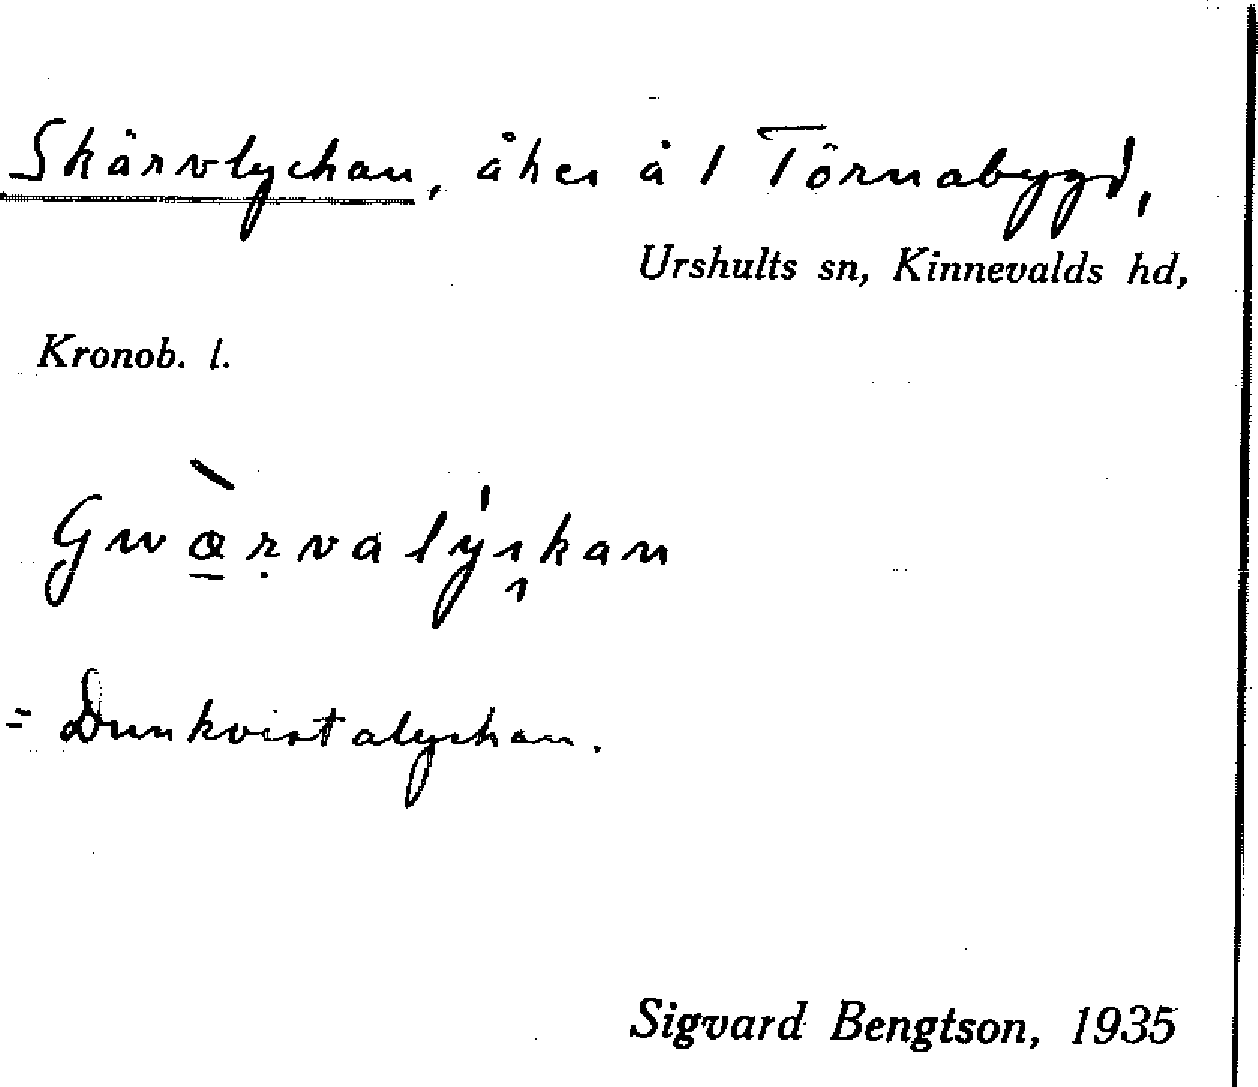 Skärvlyckan, åker å 1 Törnabygd,
Urshults sn, Kinnevalds hd,
Kronob. l.
= Dunkvistalyckan.
Sigvard Bengtson, 1935